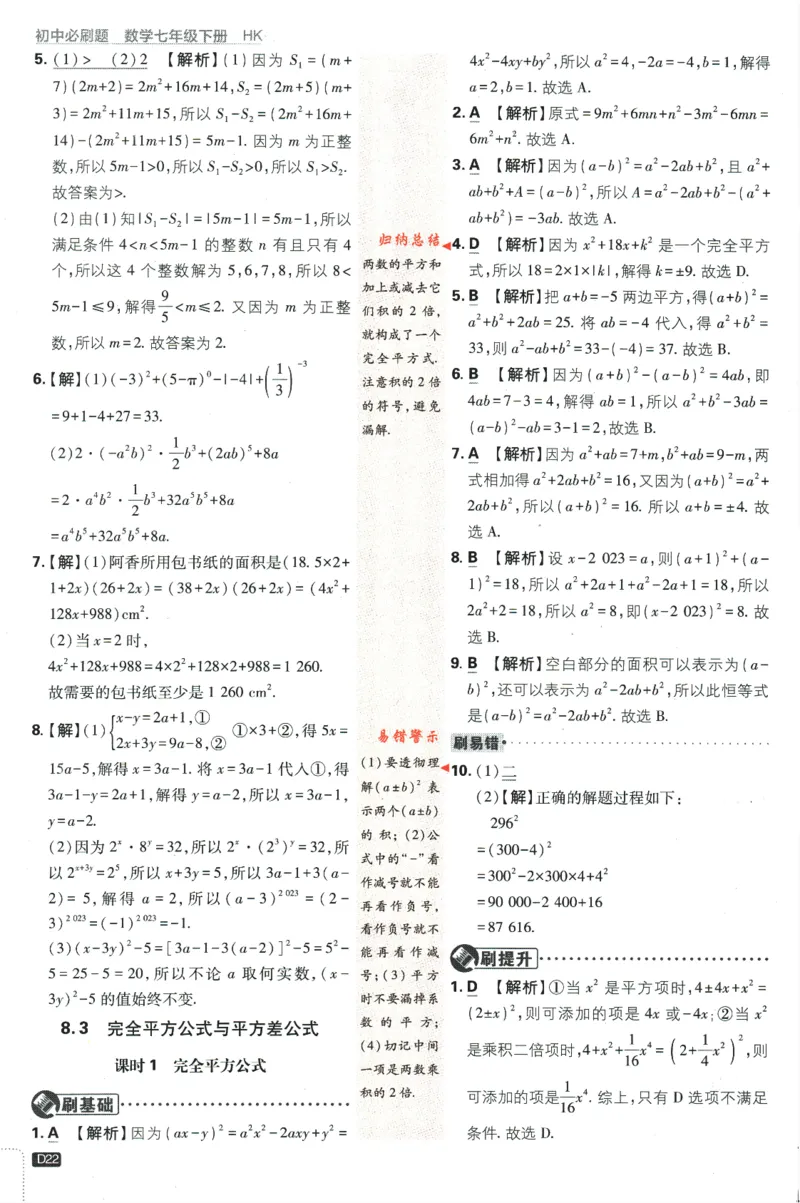 初中必刷题 数学七年级下册 HK
5. (1)> (2)2 【解析】(1)因为 S₁=(m+
7)(2m+2)=2m²+16m+14,S₂=(2m+5)(m+
3)=2m²+11m+15,所以 S₁-S₂=(2m²+16m+
14)-(2m²+11m+15)=5m-1. 因为 m 为正整
数,所以5m-1>0,所以 S₁-S₂>0,所以 S₁>S₂.
故答案为>.
(2)由(1)知|S₁-S₂|=|5m-1|=5m-1,所以
满足条件 4<n<5m-1 的整数 n 有且只有 4
个,所以这 4 个整数解为 5,6,7,8,所以 8<
5m-1≤9,解得9/5<m≤2. 又因为 m 为正整
数,所以 m=2. 故答案为 2.
6.【解】(1)(-3)²+(5-π)⁰-|-4|+(1/3)⁻³
=9+1-4+27=33.
(2)2·(-a²b)²·1/2b³+(2ab)⁵+8a
=2·a⁴b²·1/2b³+32a⁵b⁵+8a
=a⁴b⁵+32a⁵b⁵+8a.
7.【解】(1)阿香所用包书纸的面积是(18.5×2+
1+2x)(26+2x)=(38+2x)(26+2x)=(4x²+
128x+988)cm².
(2)当 x=2 时,
4x²+128x+988=4×2²+128×2+988=1 260.
故需要的包书纸至少是 1 260 cm².
8.【解】(1){x-y=2a+1,①
2x+3y=9a-8,② ①×3+②,得 5x=
15a-5,解得 x=3a-1. 将 x=3a-1 代入①,得
3a-1-y=2a+1,解得 y=a-2,所以 x=3a-1,
y=a-2.
(2)因为 2ˣ·8ʸ=32,所以 2ˣ·(2³)ʸ=32,所
以 2ˣ⁺³ʸ=2⁵,所以 x+3y=5,所以 3a-1+3(a-
2)=5,解得 a=2,所以(a-3)²⁰²³=(2-
3)²⁰²³=(-1)²⁰²³=-1.
(3)(x-3y)²-5=[3a-1-3(a-2)]²-5=5²-
5=25-5=20,所以不论 a 取何实数,(x-
3y)²-5 的值始终不变.
8.3 完全平方公式与平方差公式
课时1 完全平方公式
刷基础
1. A 【解析】因为(ax-y)²=a²x²-2axy+y²=
D22
归纳总结
两数的平方和
加上或减去它
们积的 2 倍,
就构成了一个
完全平方式.
注意积的2倍
的符号,避免
漏解.
易错警示
(1)要透彻理
解(a±b)² 表
示两个(a±b)
的积;(2)公
式中的“-”看
作减号就不能
再看作负号,
看作负号就不
能再看作减
号;(3)平方
时不要漏掉系
数的平方;
(4)切记中间
一项是两数乘
积的2倍.
4x²-4xy+by²,所以 a²=4,-2a=-4,b=1,解得
a=2,b=1. 故选 A.
2. A 【解析】原式=9m²+6mn+n²-3m²-6mn=
6m²+n². 故选 A.
3. A 【解析】因为(a-b)²=a²-2ab+b²,且 a²+
ab+b²+A=(a-b)²,所以 A=a²-2ab+b²-(a²+
ab+b²)=-3ab. 故选 A.
4. D 【解析】因为 x²+18x+k² 是一个完全平方
式,所以 18=2×1×|k|,解得 k=±9. 故选 D.
5. B 【解析】把 a+b=-5 两边平方,得(a+b)²=
a²+b²+2ab=25. 将 ab=-4 代入,得 a²+b²=
33,则 a²-ab+b²=33-(-4)=37. 故选 B.
6. B 【解析】因为(a+b)²-(a-b)²=4ab,即
4ab=7-3=4,解得 ab=1,所以 a²+b²-3ab=
(a-b)²-ab=3-1=2,故选 B.
7. A 【解析】因为 a²+ab=7+m,b²+ab=9-m,两
式相加得 a²+2ab+b²=16,又因为(a+b)²=a²+
2ab+b²,所以(a+b)²=16. 所以 a+b=±4. 故
选 A.
8. B 【解析】设 x-2 023=a,则(a+1)²+(a-
1)²=18,所以 a²+2a+1+a²-2a+1=18,所以
2a²+2=18,所以 a²=8,即(x-2 023)²=8. 故
选 B.
9. B 【解析】空白部分的面积可以表示为(a-
b)²,还可以表示为 a²-2ab+b²,所以此恒等式
是(a-b)²=a²-2ab+b². 故选 B.
刷易错
10. (1)二
(2)【解】正确的解题过程如下:
296²
=(300-4)²
=300²-2×300×4+4²
=90 000-2 400+16
=87 616.
刷提升
1. D 【解析】①当 x² 是平方项时,4±4x+x²=
(2±x)²,则可添加的项是 4x 或-4x;②当 x²
是乘积二倍项时,4+x²+1/16x⁴=(2+1/4x²)²,则
可添加的项是1/16x⁴. 综上,只有 D 选项不满足
条件. 故选 D.